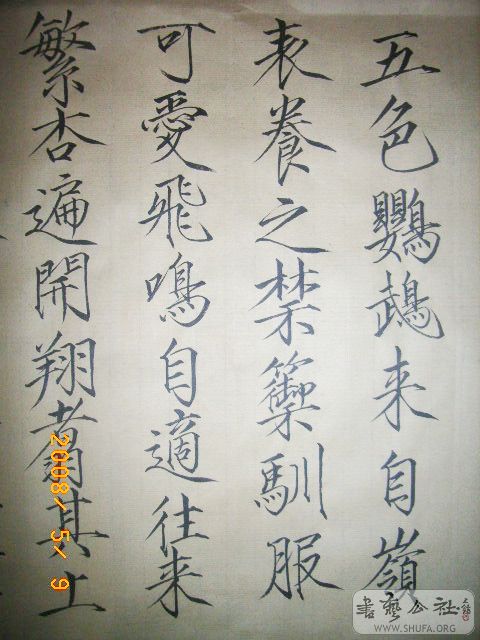 五色鸚鵡来自嶺
表養之禁籞馴服
可愛飛鳴自適往来
繁杏遍開翔翥其上
2008/5/9
書藝公社
WWW.SHUFA.ORG